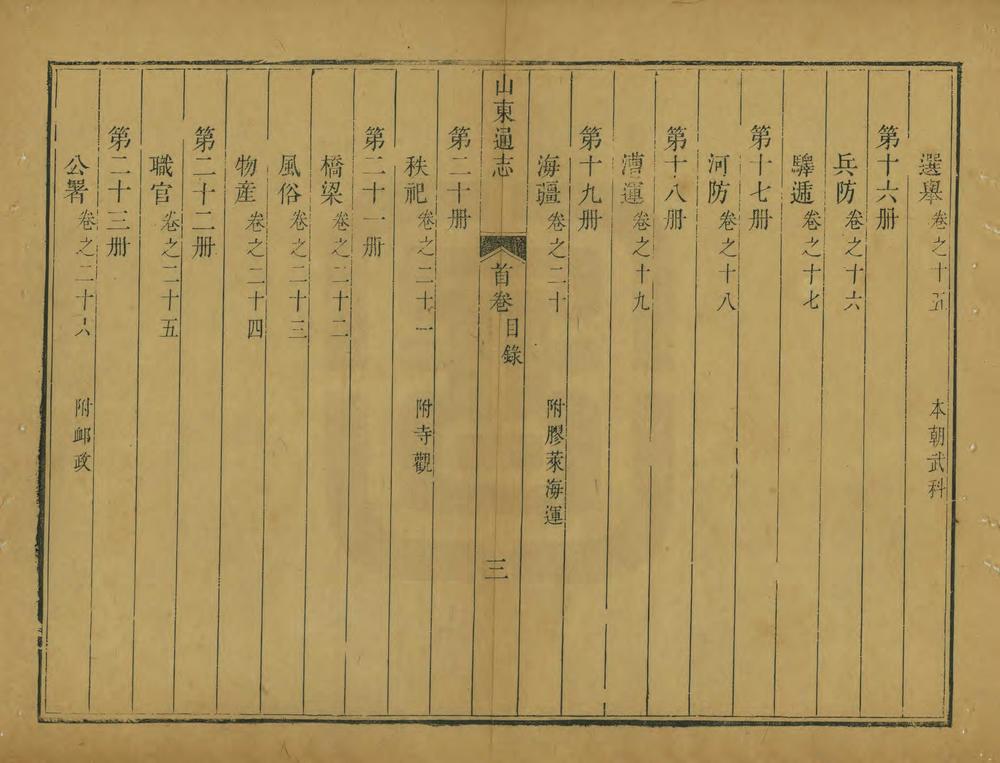 選舉 卷之十五 本朝武科
第十六册
兵防 卷之十六
驛遞 卷之十七
第十七册
河防 卷之十八
第十八册
漕運 卷之十九
第十九册
海疆 卷之二十 附膠萊海運
山東通志 首卷 目錄 三
第二十册
秩祀 卷之二十一 附寺觀
第二十一册
橋梁 卷之二十二
風俗 卷之二十三
物産 卷之二十四
第二十二册
職官 卷之二十五
第二十三册
公署 卷之二十六 附郵政